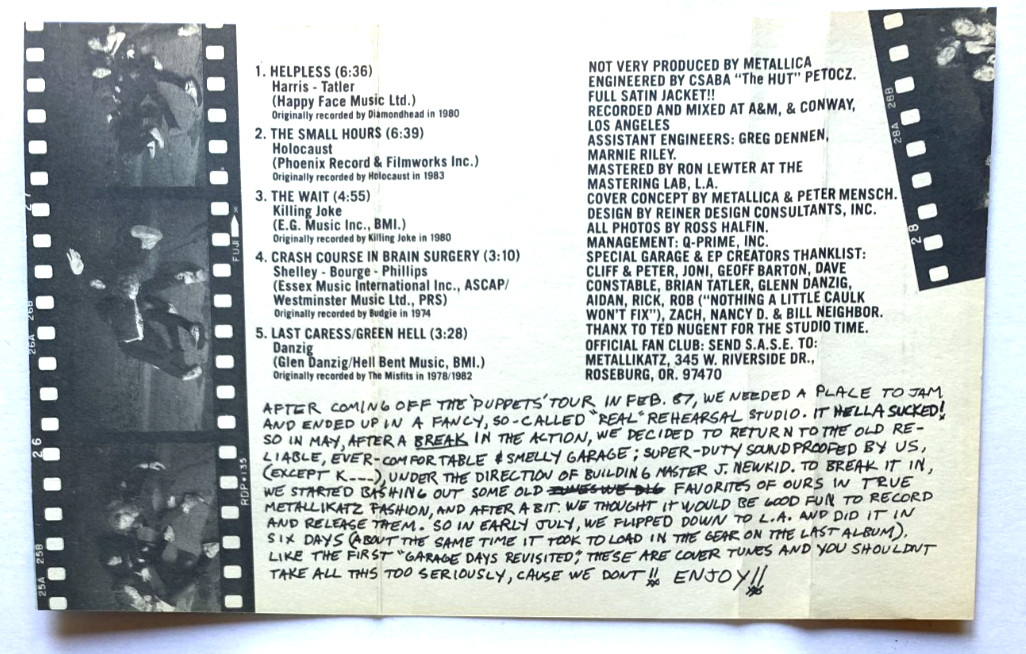 1. HELPLESS (6:36)
Harris - Tatler
(Happy Face Music Ltd.)
Originally recorded by Diamondhead in 1980
2. THE SMALL HOURS (6:39)
Holocaust
(Phoenix Record & Filmworks Inc.)
Originally recorded by Holocaust in 1983
3. THE WAIT (4:55)
Killing Joke
(E.G. Music Inc., BMI.)
Originally recorded by Killing Joke in 1980
4. CRASH COURSE IN BRAIN SURGERY (3:10)
Shelley - Bourge - Phillips
(Essex Music International Inc., ASCAP/
Westminster Music Ltd., PRS)
Originally recorded by Budgie in 1974
5. LAST CARESS/GREEN HELL (3:28)
Danzig
(Glen Danzig/Hell Bent Music, BMI.)
Originally recorded by The Misfits in 1978/1982
NOT VERY PRODUCED BY METALLICA
ENGINEERED BY CSABA "The HUT" PETOCZ.
FULL SATIN JACKET!!
RECORDED AND MIXED AT A&M, & CONWAY,
LOS ANGELES
ASSISTANT ENGINEERS: GREG DENNEN,
MARNIE RILEY.
MASTERED BY RON LEWTER AT THE
MASTERING LAB, L.A.
COVER CONCEPT BY METALLICA & PETER MENSCH.
DESIGN BY REINER DESIGN CONSULTANTS, INC.
ALL PHOTOS BY ROSS HALFIN.
MANAGEMENT: Q-PRIME, INC.
SPECIAL GARAGE & EP CREATORS THANKLIST:
CLIFF & PETER, JONI, GEOFF BARTON, DAVE
CONSTABLE, BRIAN TATLER, GLENN DANZIG,
AIDAN, RICK, ROB ("NOTHING A LITTLE CAULK
WON'T FIX"), ZACH, NANCY D. & BILL NEIGHBOR.
THANX TO TED NUGENT FOR THE STUDIO TIME.
OFFICIAL FAN CLUB: SEND S.A.S.E. TO:
METALLIKATZ, 345 W. RIVERSIDE DR.,
ROSEBURG, OR. 97470
AFTER COMING OFF THE 'PUPPETS' TOUR IN FEB. 87, WE NEEDED A PLACE TO JAM
AND ENDED UP IN A FANCY, SO-CALLED "REAL" REHEARSAL STUDIO. IT HELLA SUCKED!
SO IN MAY, AFTER A BREAK IN THE ACTION, WE DECIDED TO RETURN TO THE OLD RE-
LIABLE, EVER-COMFORTABLE & SMELLY GARAGE; SUPER-DUTY SOUNDPROOFED BY US,
(EXCEPT K___), UNDER THE DIRECTION OF BUILDING MASTER J. NEWKID. TO BREAK IT IN,
WE STARTED BASHING OUT SOME OLD TUNES WE DIG FAVORITES OF OURS IN TRUE
METALLIKATZ FASHION, AND AFTER A BIT. WE THOUGHT IT WOULD BE GOOD FUN TO RECORD
AND RELEASE THEM. SO IN EARLY JULY, WE FLIPPED DOWN TO L.A. AND DID IT IN
SIX DAYS (ABOUT THE SAME TIME IT TOOK TO LOAD IN THE GEAR ON THE LAST ALBUM).
LIKE THE FIRST "GARAGE DAYS REVISITED", THESE ARE COVER TUNES AND YOU SHOULDNT
TAKE ALL THIS TOO SERIOUSLY, CAUSE WE DONT!! ENJOY!!
26B
26A
FUJI
26
RDP•135
25B
25A
28B
28A
28